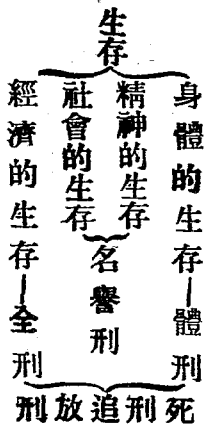 生存
身體的生存—體刑
精神的生存
社會的生存
名譽刑
經濟的生存—全刑
死刑追放刑